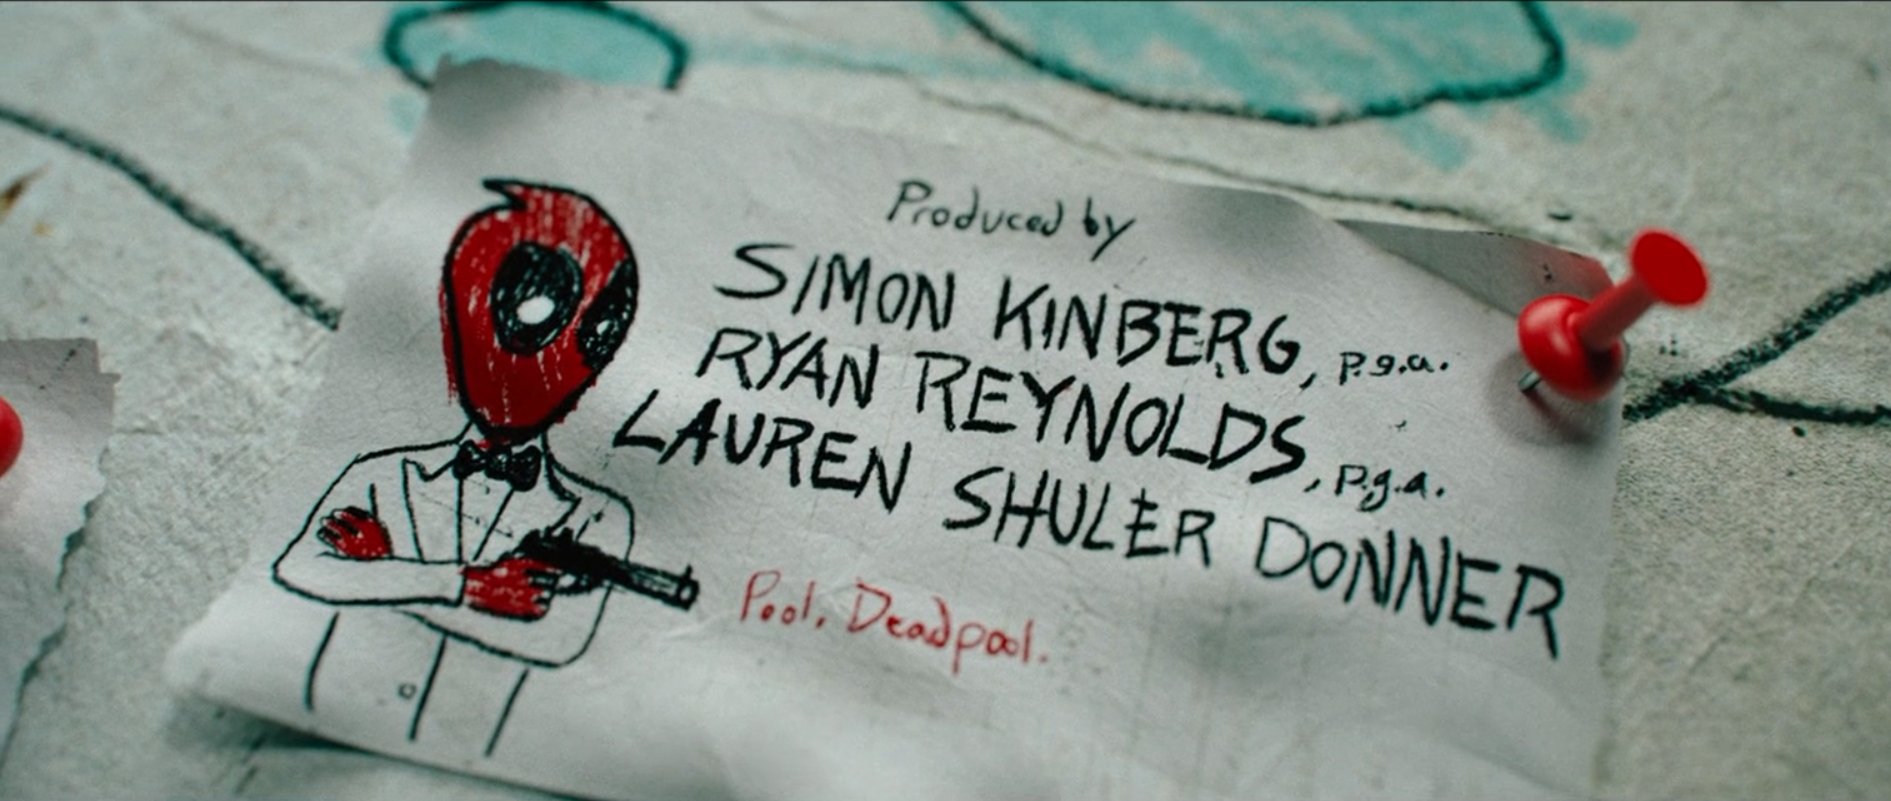 Produced by
SIMON KINBERG, p.g.a.
RYAN REYNOLDS, p.g.a.
LAUREN SHULER DONNER
Pool. Deadpool.